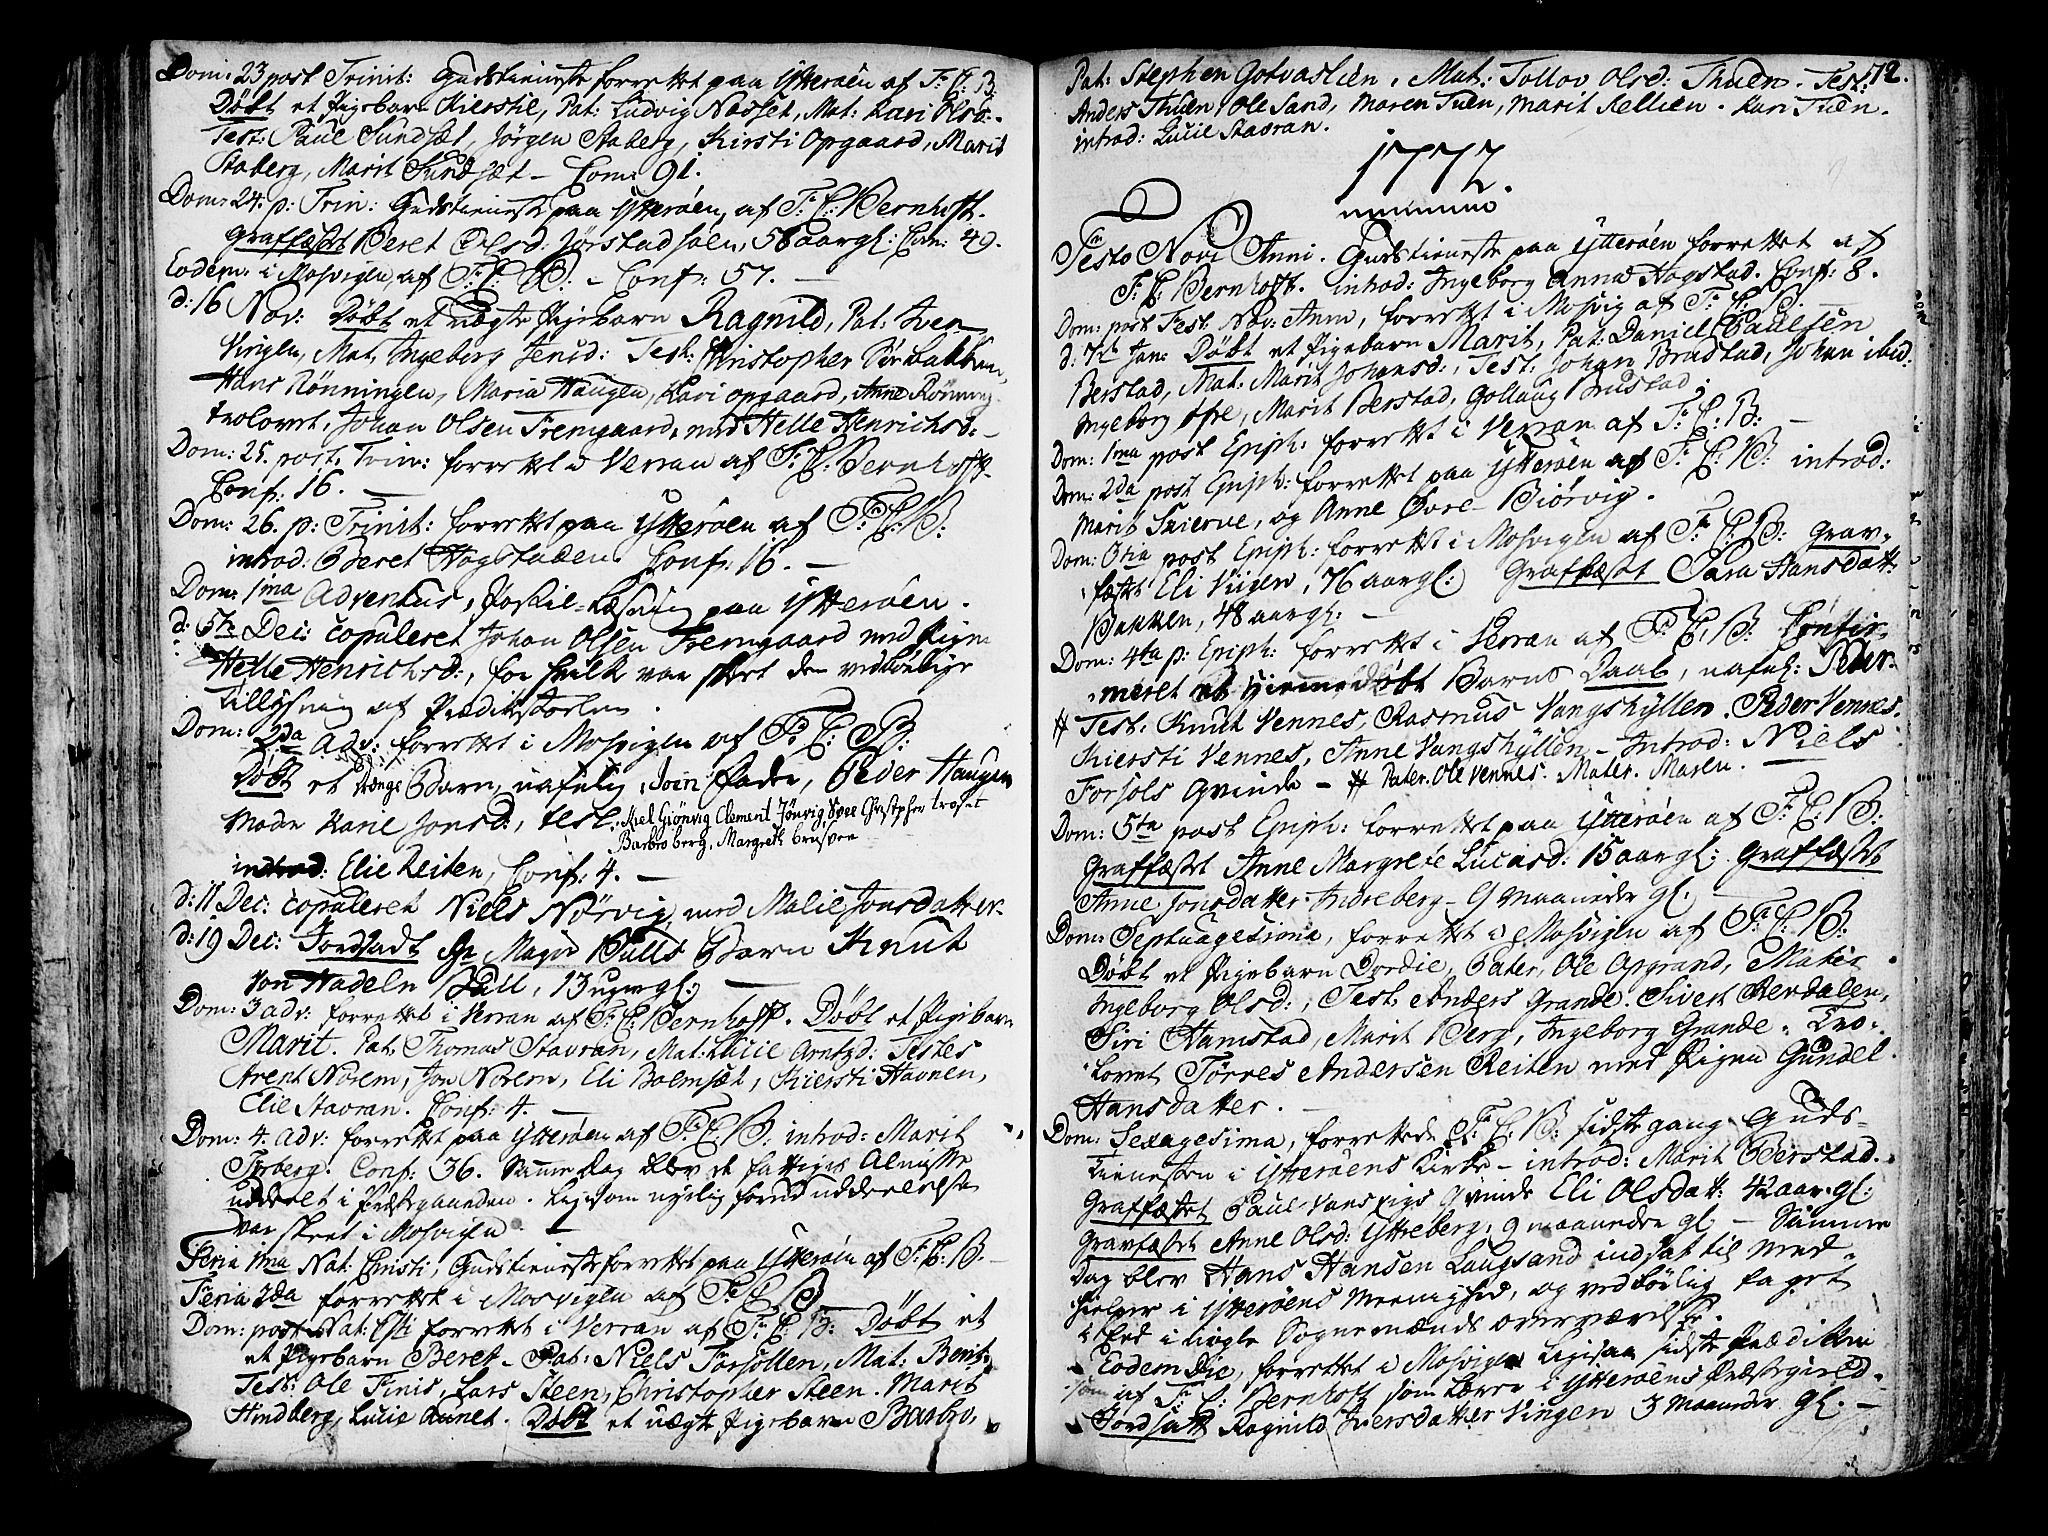 Dom: 23 post Trinit: Gudstieneste forrettet paa Ytterøen af F: C: B:
Døbt et Pigebarn Kierstie, Pat: Ludvig Næsset, Mat: Kari Olsd:
Test: Paul Sundsæt, Jørgen Staberg, Kirsti Opgaard, Marit
Staberg, Marit Sundsæt - Com: 91.
Dom: 24. p: Trin: Gudstieneste paa Ytterøen, af F: C: Bernhoft.
Graffæstet Beret Olsd: Jørstadsoen, 58 aar gl: Com: 49.
Eodem: i Mosvigen, af F: C: B: - Conf: 57. -
d: 16 Nov: Døbt et uægte Pigebarn Ragnild, Pat: Iver
Vingen, Mat, Ingeborg Jensd: Test: Christopher
Hans Rönningen, Maria Haugen, Kari Opgaard, Anne Rönning
trolovet, Johan Olsen Fremgaard, med Helle Henrichsd: -
Dom: 25. post. Trin: forrettet i Verran af F: C: Bernhoft.
Conf: 16. -
Dom: 26. p: Trinit: forrettet paa Ytterøen af F: C: B:
introd: Beret Hogstaden. Conf: 16. -
Dom: 1ma Adventus, Postil-Læsning paa Ytterøen.
d: 5te Dec: copuleret Johan Olsen Fremgaard med Pigen
Helle Henrichsd:, for hvilke var skeet den vedbørlige
Tillysning af Prædikestolen.
Dom: 2da Adv: forrettet i Mosvigen af F: C: B:
Døbt et Drenge Barn, nafnlig, Joen fader, Peder Haugen
Moder Karie Jonsd:, test: Axel Grönvig Clement Jönvig Christopher
Barbro berg, Margrete
introd: Elie Reiten, Conf: 4. -
d: 11 Dec: copuleret Niels Nörvig med Malie Jonsdatter.
d: 19 Dec: Jordsadt Hr Major Bulls Barn Knut
Von Hadeln Bull, 13 uger gl: -
Dom: 3 adv: forrettet i Verran af F: C: Bernhoff. Döbt et Pigebarn
Marit. Pat: Thomas Stavran, Mat: Lucie Arntzd: Testes
Arent Norem, Jon Norem, Eli Bolmsæt, Kiersti Havnen,
Elie Stavran. Conf: 4. -
Dom: 4. Adv: forrettet paa Ytterøen af F: C: B: introd: Marit
Forberg. Conf: 36. Samme Dag blev de fattiges Almisse
uddeelt i Præstegaarden. Ligesom nyelig forud uddeelelse
var skeet i Mosvigen.
Feria 1ma Nat: Christi, Gudstieneste forrettet paa Ytterøen af F: C: B: -
Feria 2da forrettet i Mosvigen af F: C: B:
Dom: post Nat: Chsti forrettet i Verran af F: C: B: Døbt et
et Pigebarn Beret - Pat: Niels Forsollen, Mat: Berit.
Test: Ole Finis, Lars Steen, Christopher Steen. Marit
Hindberg, Lucie Aunet. Døbt et uægte Pigebarn Barbro,
72.
Pat: Stephen Gotvaslien, Mat: Tollov Olsd: Thuen. Test:
Anders Thuen, Ole Sand, Maren Tuen, Marit Kellien. Kari Tuen.
introd: Lucie Stavran.
1772.
Festo Novi Anni. Gudstieneste paa Ytterøen forrettet af
F: C: Bernhoft. introd: Ingeborg Anna Hogstad. Conf: 8.
Dom: post Fest. Nov: Anni, forrettet i Mosvig af F: C: B: -
d: 7de Jan: Døbt et Pigebarn Marit, Pat: Daniel Paulsen
Berstad, Mat: Marit Johansd:, Test: Johan Brustad, Johan ibid.
Ingeborg Øfre, Marit Berstad, Gollaug Brustad.
Dom: 1ma post Epiph: forrettet i Verran af F: C: B: -
Dom: 2da post Epiph: forrettet paa Ytterøen af F: C: B: introd:
Marit Skierve, og Anne Øvre-Biörvig.
Dom: 3tia post Epiph: forrettet i Mosvigen af F: C: B: Grav-
fæstet Eli Viigen, 76 aar gl: Graffæstet Sara Hansdatt:
Bakken, 48 aar gl: -
Dom: 4ta p: Epiph: forrettet i Verran af F: C: B: Confir-
meret et hiemmedøbt Barns Daab, nafnl: Peder.
# Test: Knut Vennes, Rasmus Vangshyllen. Peder Vennes.
Kiersti Vennes, Anne Vangshyllen - Introd: Niels
Forsols Qvinde - # Pater. Ole Vennes. Mater. Maren.
Dom: 5ta post Epiph: forrettet paa Ytterøen af F: C: B:
Graffæstet Anne Margrete Lucasd: 15 aar gl: Graffæstet
Anne Jonsdatter Indreberg - 9 maaneder gl. -
Dom: Septuagesima, forrettet i Mosvigen af F: C: B:
Døbt et Pigebarn Dordie, Pater, Ole Opgrand, Mater
Ingeborg Olsd:, Test: Anders Grande. Sivert Rerdalen,
Siri Hamstad, Marit Berg, Ingeborg Grande. Tro-
lovet Torres Andersen Reiten med Pigen Gundel
Hansdatter. -
Dom: Sexagesima, forrettede F: C: B: sidste gang Guds-
tienesten i Ytterøens Kirke - introd: Marit Berstad.
Graffæstet Paul Vansvigs Qvinde Eli Olsdatt: 42 aar gl:
Gravfæstet Anne Olsd: Ytreberg, 9 maaneder gl - Samme
Dag blev Hans Hansen Laugsand indsat til Med-
hielper i Ytterøens Meenighed, og vedbørlig taget
i Eed i nogle Sognemænds overværelse.
Eodem Die, forrettet i Mosvigen ligesaa sidste Prædiken
af F: C: Bernhoft som Lærer i Ytterøens Præstegield.
Jordsatt Ragnild Iversdatter Vingen 3 Maaneder gl. -